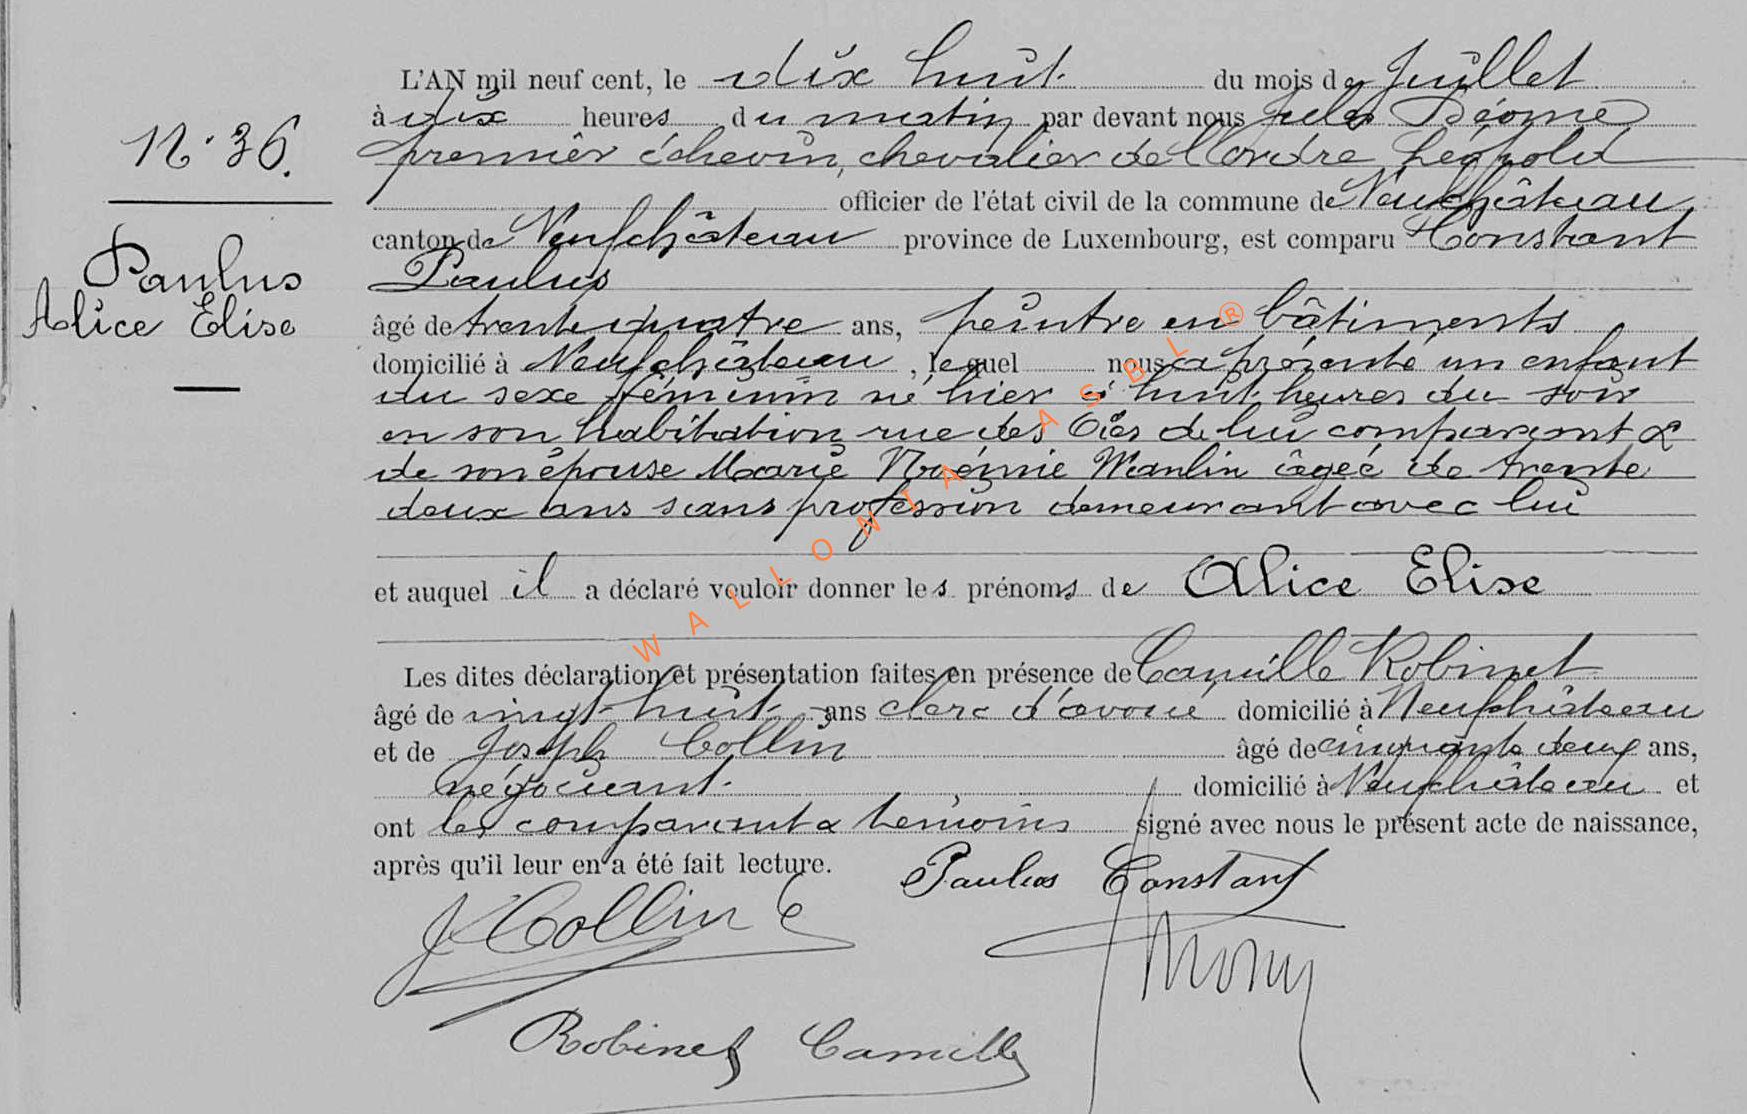 L'AN mil neuf cent, le dix huit du mois de Juillet
à dix heures du matin par devant nous Jules Déome
premier échevin, chevalier de l'ordre Léopold
officier de l'état civil de la commune de Neufchâteau
canton de Neufchâteau province de Luxembourg, est comparu Constant
Paulus
N. 36.
Paulus
Alice Elise
âgé de trente quatre ans, peintre en bâtiments
domicilié à Neufchâteau, lequel nous a présenté un enfant
du sexe féminin né hier à huit heures du soir
en son habitation rue des de lui comparant &
de son épouse Marie Noémie Wanlin âgée de trente
deux ans sans profession demeurant avec lui
et auquel il a déclaré vouloir donner les prénoms de Alice Elise
Les dites déclaration et présentation faites en présence de Camille Robinet
âgé de vingt-huit ans clerc d'avoué domicilié à Neufchâteau
et de Joseph Collin âgé de cinquante deux ans,
négociant domicilié à Neufchâteau et
ont les comparant & témoins signé avec nous le présent acte de naissance,
après qu'il leur en a été fait lecture.
Paulus Constant
J Collin
Robinet Camille
WALLONIA ASBL ®